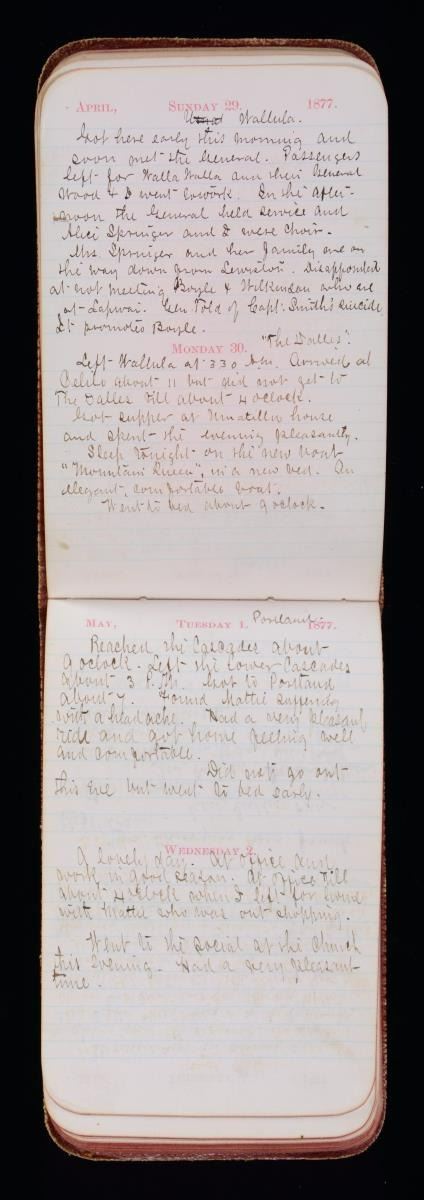 April, Sunday 29. 1877.
Wallula.
Got here early this morning and
soon met the General. Passengers
left for Walla Walla and then General
Wood & I went to work. In the after-
noon the General held service and
Alice Springer and I were choir.
Mrs. Springer and her family are on
the way down from Lewiston. Disappointed
at not meeting Boyle & Wilkinson who are
at Lapwai. Gen. Told of Capt. Smith's suicide
It promotes Boyle.
"The Dalles".
Monday 30.
Left Wallula at 3 30 A.m. Arrived at
Celilo about 11 but did not get to
The Dalles till about 4 oclock.
Got supper at Umatilla house
and spent the evening pleasantly.
Sleep tonight on the new boat
"Mountain Queen", in a new bed. An
elegant, comfortable boat.
Went to bed about 9 oclock.
May, Tuesday 1. Portland. 1877.
Reached the Cascades about
9 oclock. Left the Lower Cascades
about 3 P.M. Got to Portland
about 7. Found Mattie suffering
with a headache. Had a very pleasant
ride and got home feeling well
and comfortable.
Did not go out
this eve but went to bed early.
Wednesday 2.
A lovely day. At office and
work in good season. At office till
about 4 oclock when I left for home
with Mattie who was out shopping.
Went to the social at the church
this Evening. Had a very pleasant
time.